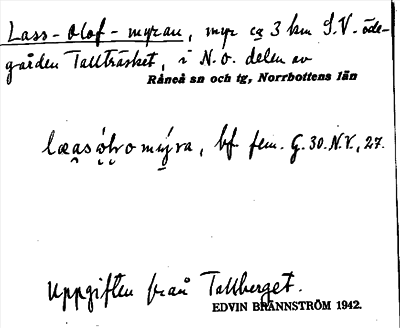 Lass-Olof-myran, myr ca 3 km S.V. öde-
gården Tallträsket, i N.O. delen av
Råneå sn och tg, Norrbottens län
bf fem. G. 30. N.V., 27.
Uppgiften från Tallberget.
EDVIN BRÄNNSTRÖM 1942.